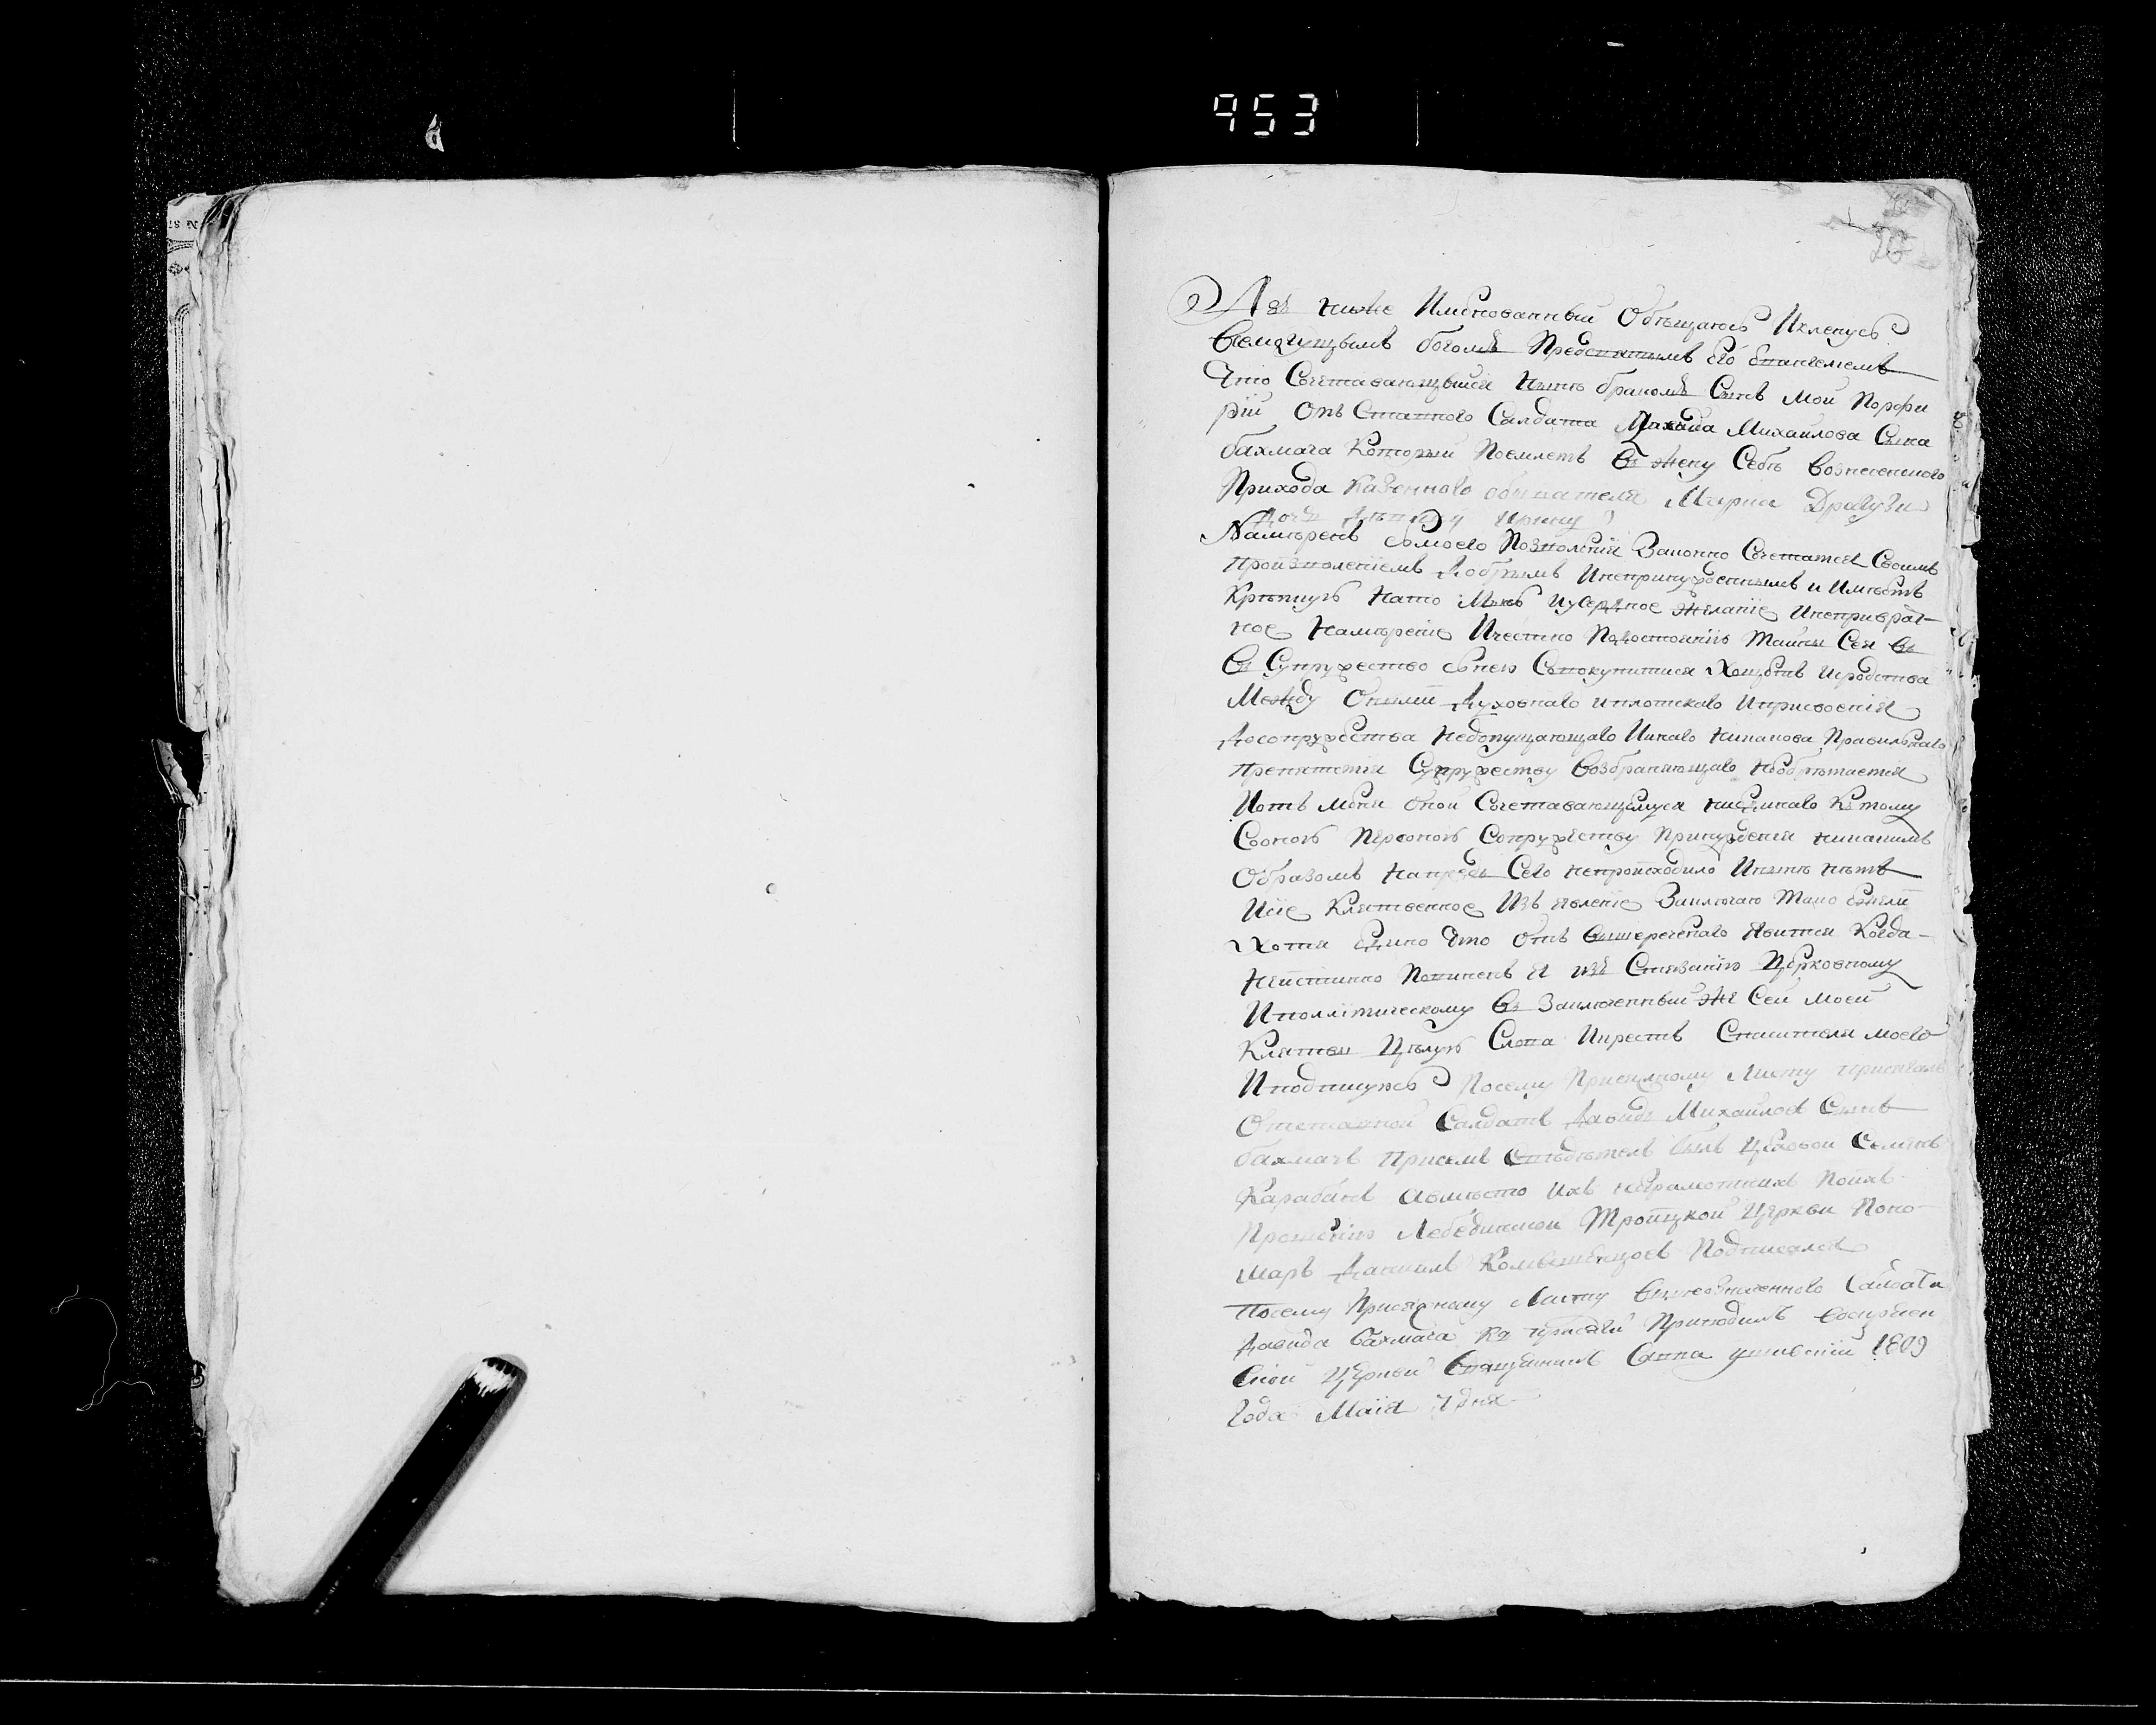 953
26
Азъ ниже Именованный Обѣщаюсь Икленусь
Всемогущымъ богомъ Предсвятымъ Его Евангелиемъ
Что Сочетавающыйся Нынѣ бракомъ Сынъ Мой Порфи
рій Отъ Ставного Салдата Михайлова Сына
бахмача Который Поемлетъ Въ Жену Себѣ вознесенского
Прихода Казенного обывателя Марка
дочь дѣвицу Ирину
Намѣренъ Сомоего Позволенія Законно Сочетатся Своимъ
Произволеніемъ добрымъ Инепринужденнымъ и Имѣетъ
Крѣпкую Нато Мысль Иусердное Желаніе Инепривѣрат-
ное Намѣреніе Ичестно Подостоянію Тайны Сея Въ
Въ Супружество Сънею Совокупитися Хощетъ Исродства
Между Оными Духовнаго иплотскаго Иприсвоенія
досопружества Недопущающаго Иинаго Никакова Правильнаго
препятствія Супружеству Возбраняющаго Необрѣтается
Иотъ Меня Оной Сочетавающемуся Ниединаго Ктому
Сооною Персоною Сопружеству Принужденія никакимъ
Образомъ Напредъ Сего Непроисходило Инынѣ нѣтъ
Исіе Клятвенное Изъявленіе Заключаю Тако Ежели
Хотя Едино Что Отъ Вышереченнаго Явится Когда-
Неистинно Повиненъ Я Стязанію Церковному
Иполлітическому Въ Заключенный Же Сей Моей
Клятвы Цѣлую Слова Икрестъ Спасителя моего
Иподпишусь Посему Присяжному Листу присягалъ
Отставной Салдатъ Давидъ Михайловъ Сынъ
бахмачъ Присемъ Свѣдѣтель былъ Цеховой Семенъ
Карабанъ Авмѣсто Ихъ неграмотныхъ Поихъ
Прошенію Лебединской Троицкой Церкви Поно-
марь Даниилъ Подписался
Посему Присяжному Листу Вышеозначенного Салдата
Давида бахмача Къ присяги Приводилъ воскресен
ской Церкви Священникъ Савва 1809
Года Маія 7 дня